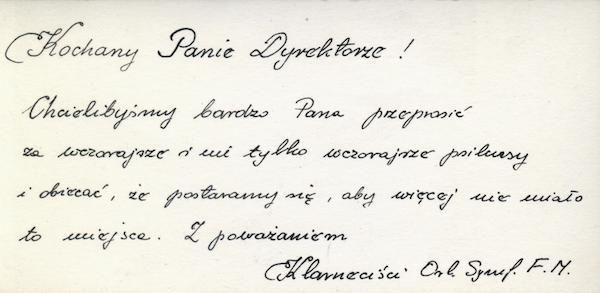 Kochany Panie Dyrektorze !
Chcielibyśmy bardzo Pana przeprosić
za wczorajsze i nie tylko wczorajsze psikusy
i obiecać, że postaramy się, aby więcej nie miało
to miejsca. Z poważaniem
Klarneciści Ork. Symf. F. N.